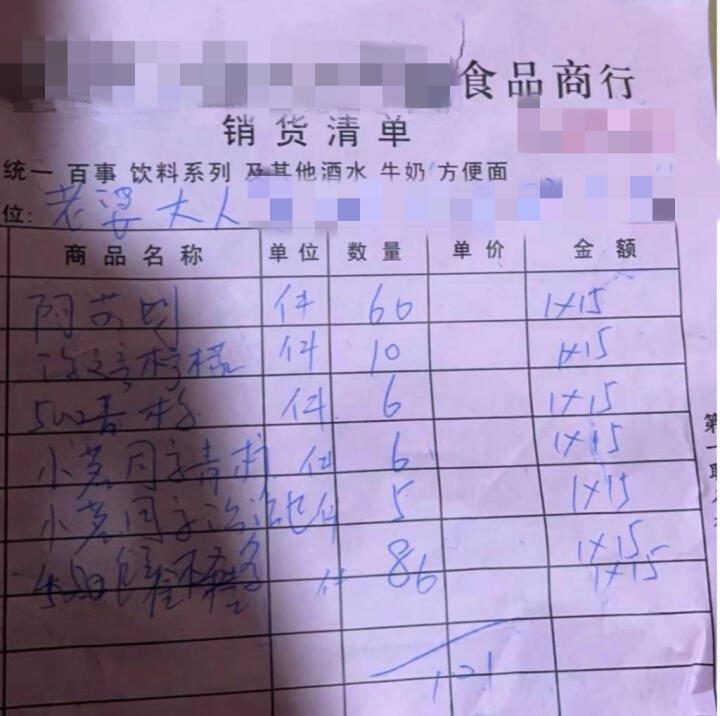 食品商行
销货清单
统一 百事 饮料系列 及其他酒水 牛奶 方便面
位: 老婆大人
商品名称 单位 数量 单价 金额
阿萨姆 件 60 1×15
件 10 1×15
500青柠 件 6 1×15
小茗同学青柠 件 6 1×15
小茗同学 件 5 1×15
件 86 1×15
1×15
121
第一联